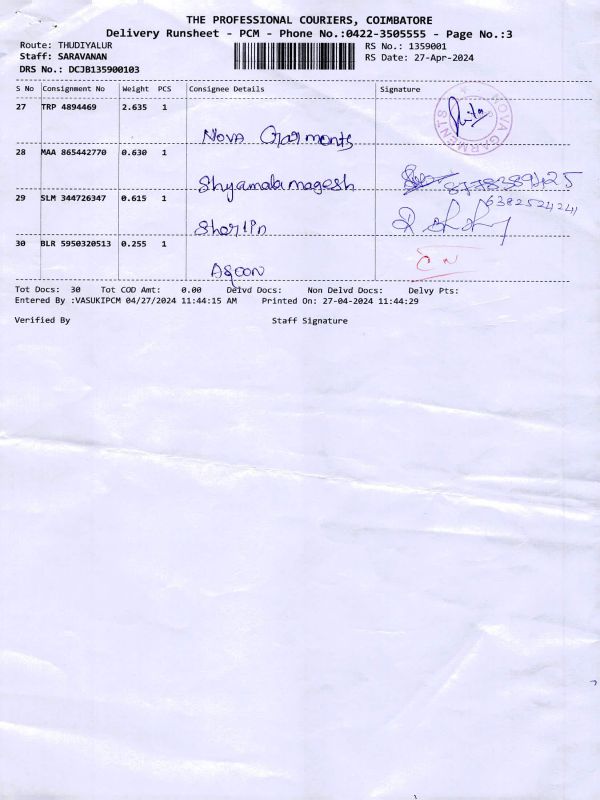 THE PROFESSIONAL COURIERS, COIMBATORE
Delivery Runsheet - PCM - Phone No.:0422-3505555 - Page No.:3
Route: THUDIYALUR RS No.: 1359001
Staff: SARAVANAN RS Date: 27-Apr-2024
DRS No.: DCJB135900103
S No Consignment No Weight PCS Consignee Details Signature
27 TRP 4894469 2.635 1
Nova Garments
NOVA GARMENTS
28 MAA 865442770 0.630 1
Shyamala magesh
29 SLM 344726347 0.615 1
Sherlin
30 BLR 5950320513 0.255 1
Tot Docs: 30 Tot COD Amt: 0.00 Delvd Docs: Non Delvd Docs: Delvy Pts:
Entered By :VASUKIPCM 04/27/2024 11:44:15 AM Printed On: 27-04-2024 11:44:29
Verified By Staff Signature